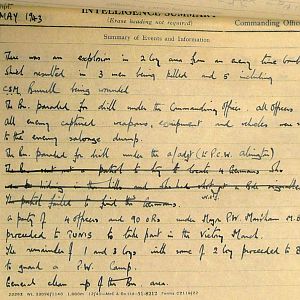 MAY 1943
INTELLIGENCE SUMMARY
(Erase heading not required)
Commanding Offic
Summary of Events and Information
There was an explosion in 2 Coy area from an enemy time bomb
which resulted in 3 men being killed and 5 including
CSM being wounded
The Bn. paraded for drill under the Commanding Officer. All officers
all enemy captured weapons, equipment and vehicles were
to the enemy salvage dump.
The Bn. paraded for drill under the a/adjt (Lt P.C.W. Alington)
The Bn. sent out a patrol to try to locate 4 Germans
to be hiding in the hills and
The patrol failed to find the Germans.
a party of 4 officers and 90 ORs under Major P.W. Marsham M.B
proceeded to TUNIS to take part in the Victory March.
The remainder of 1 and 3 Coys with some of 2 Coy proceeded to
to guard a P.W. Camp.
General clean up of the Bn. area.